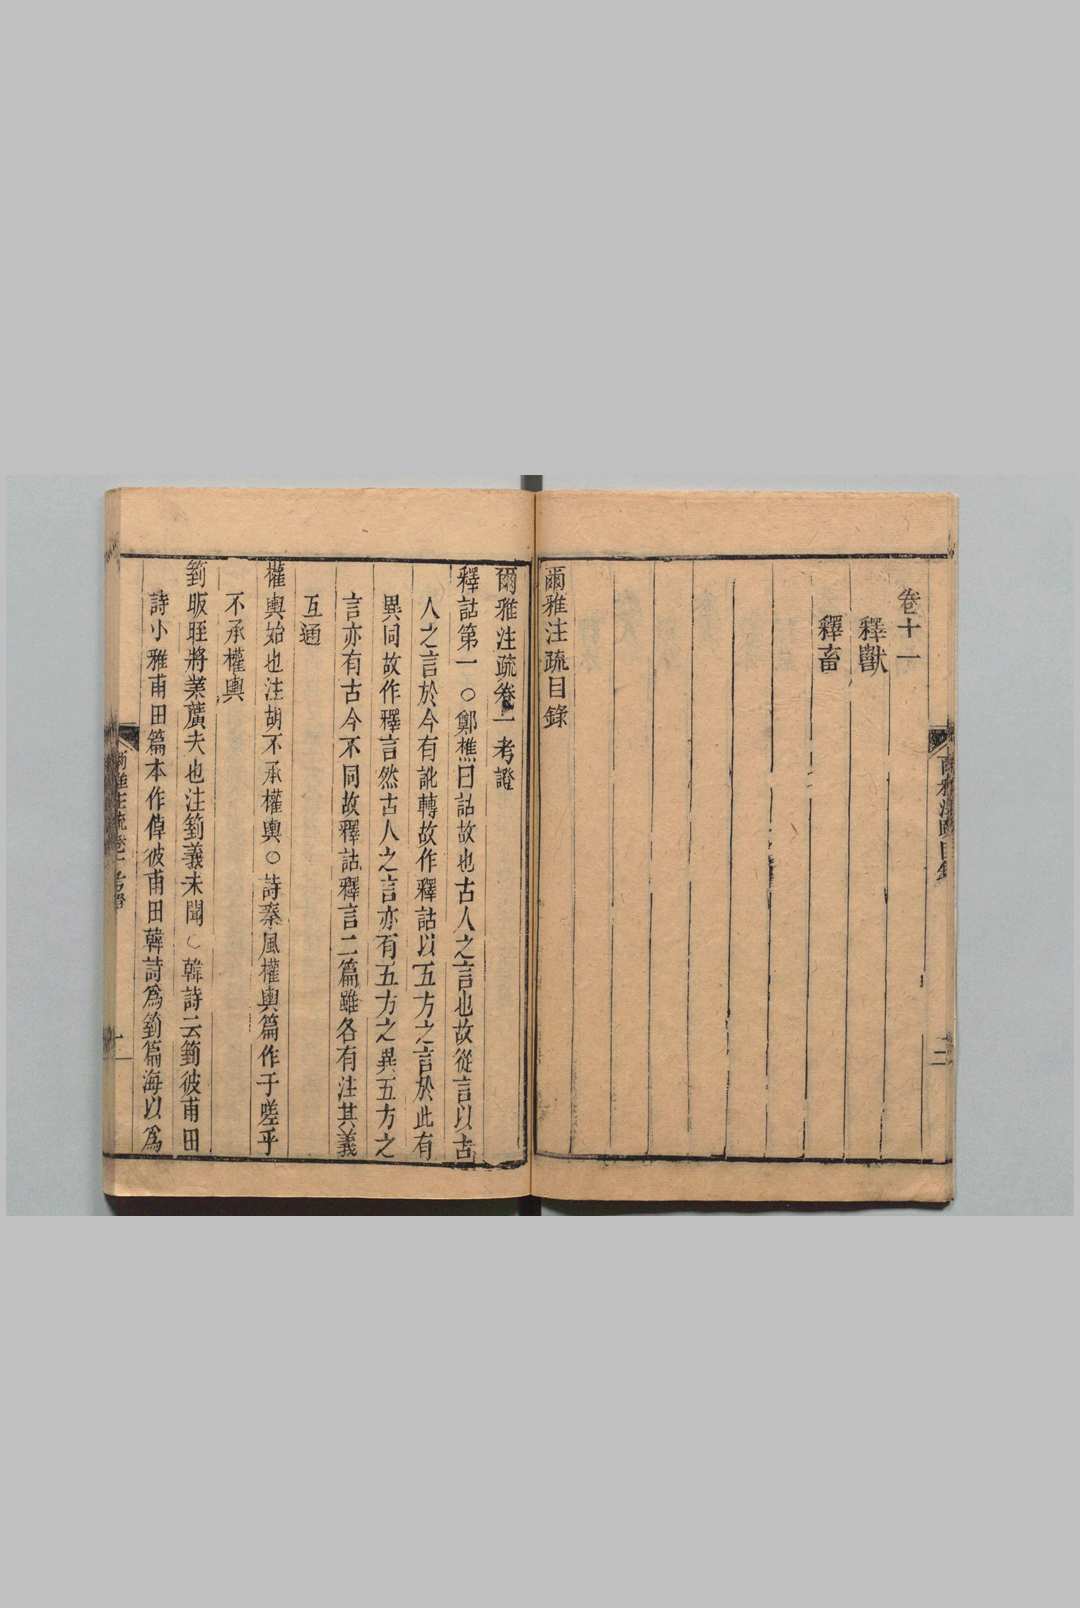 卷十一
釋獸
釋畜
爾雅注疏目錄
爾雅注疏卷一考證
釋詁第一○鄭樵曰詁故也古人之言也故從言以古
人之言於今有訛轉故作釋詁以五方之言於此有
異同故作釋言然古人之言亦有五方之異五方之
言亦有古今不同故釋詁釋言二篇雖各有注其義
互通
權輿始也注胡不承權輿○詩秦風權輿篇作于嗟乎
不承權輿
箌昄晊將業蓆大也注箌義未聞○韓詩云箌彼甫田
詩小雅甫田篇本作倬彼甫田韓詩爲箌篇海以爲
爾雅注疏目錄 二
爾雅注疏卷一考證 一